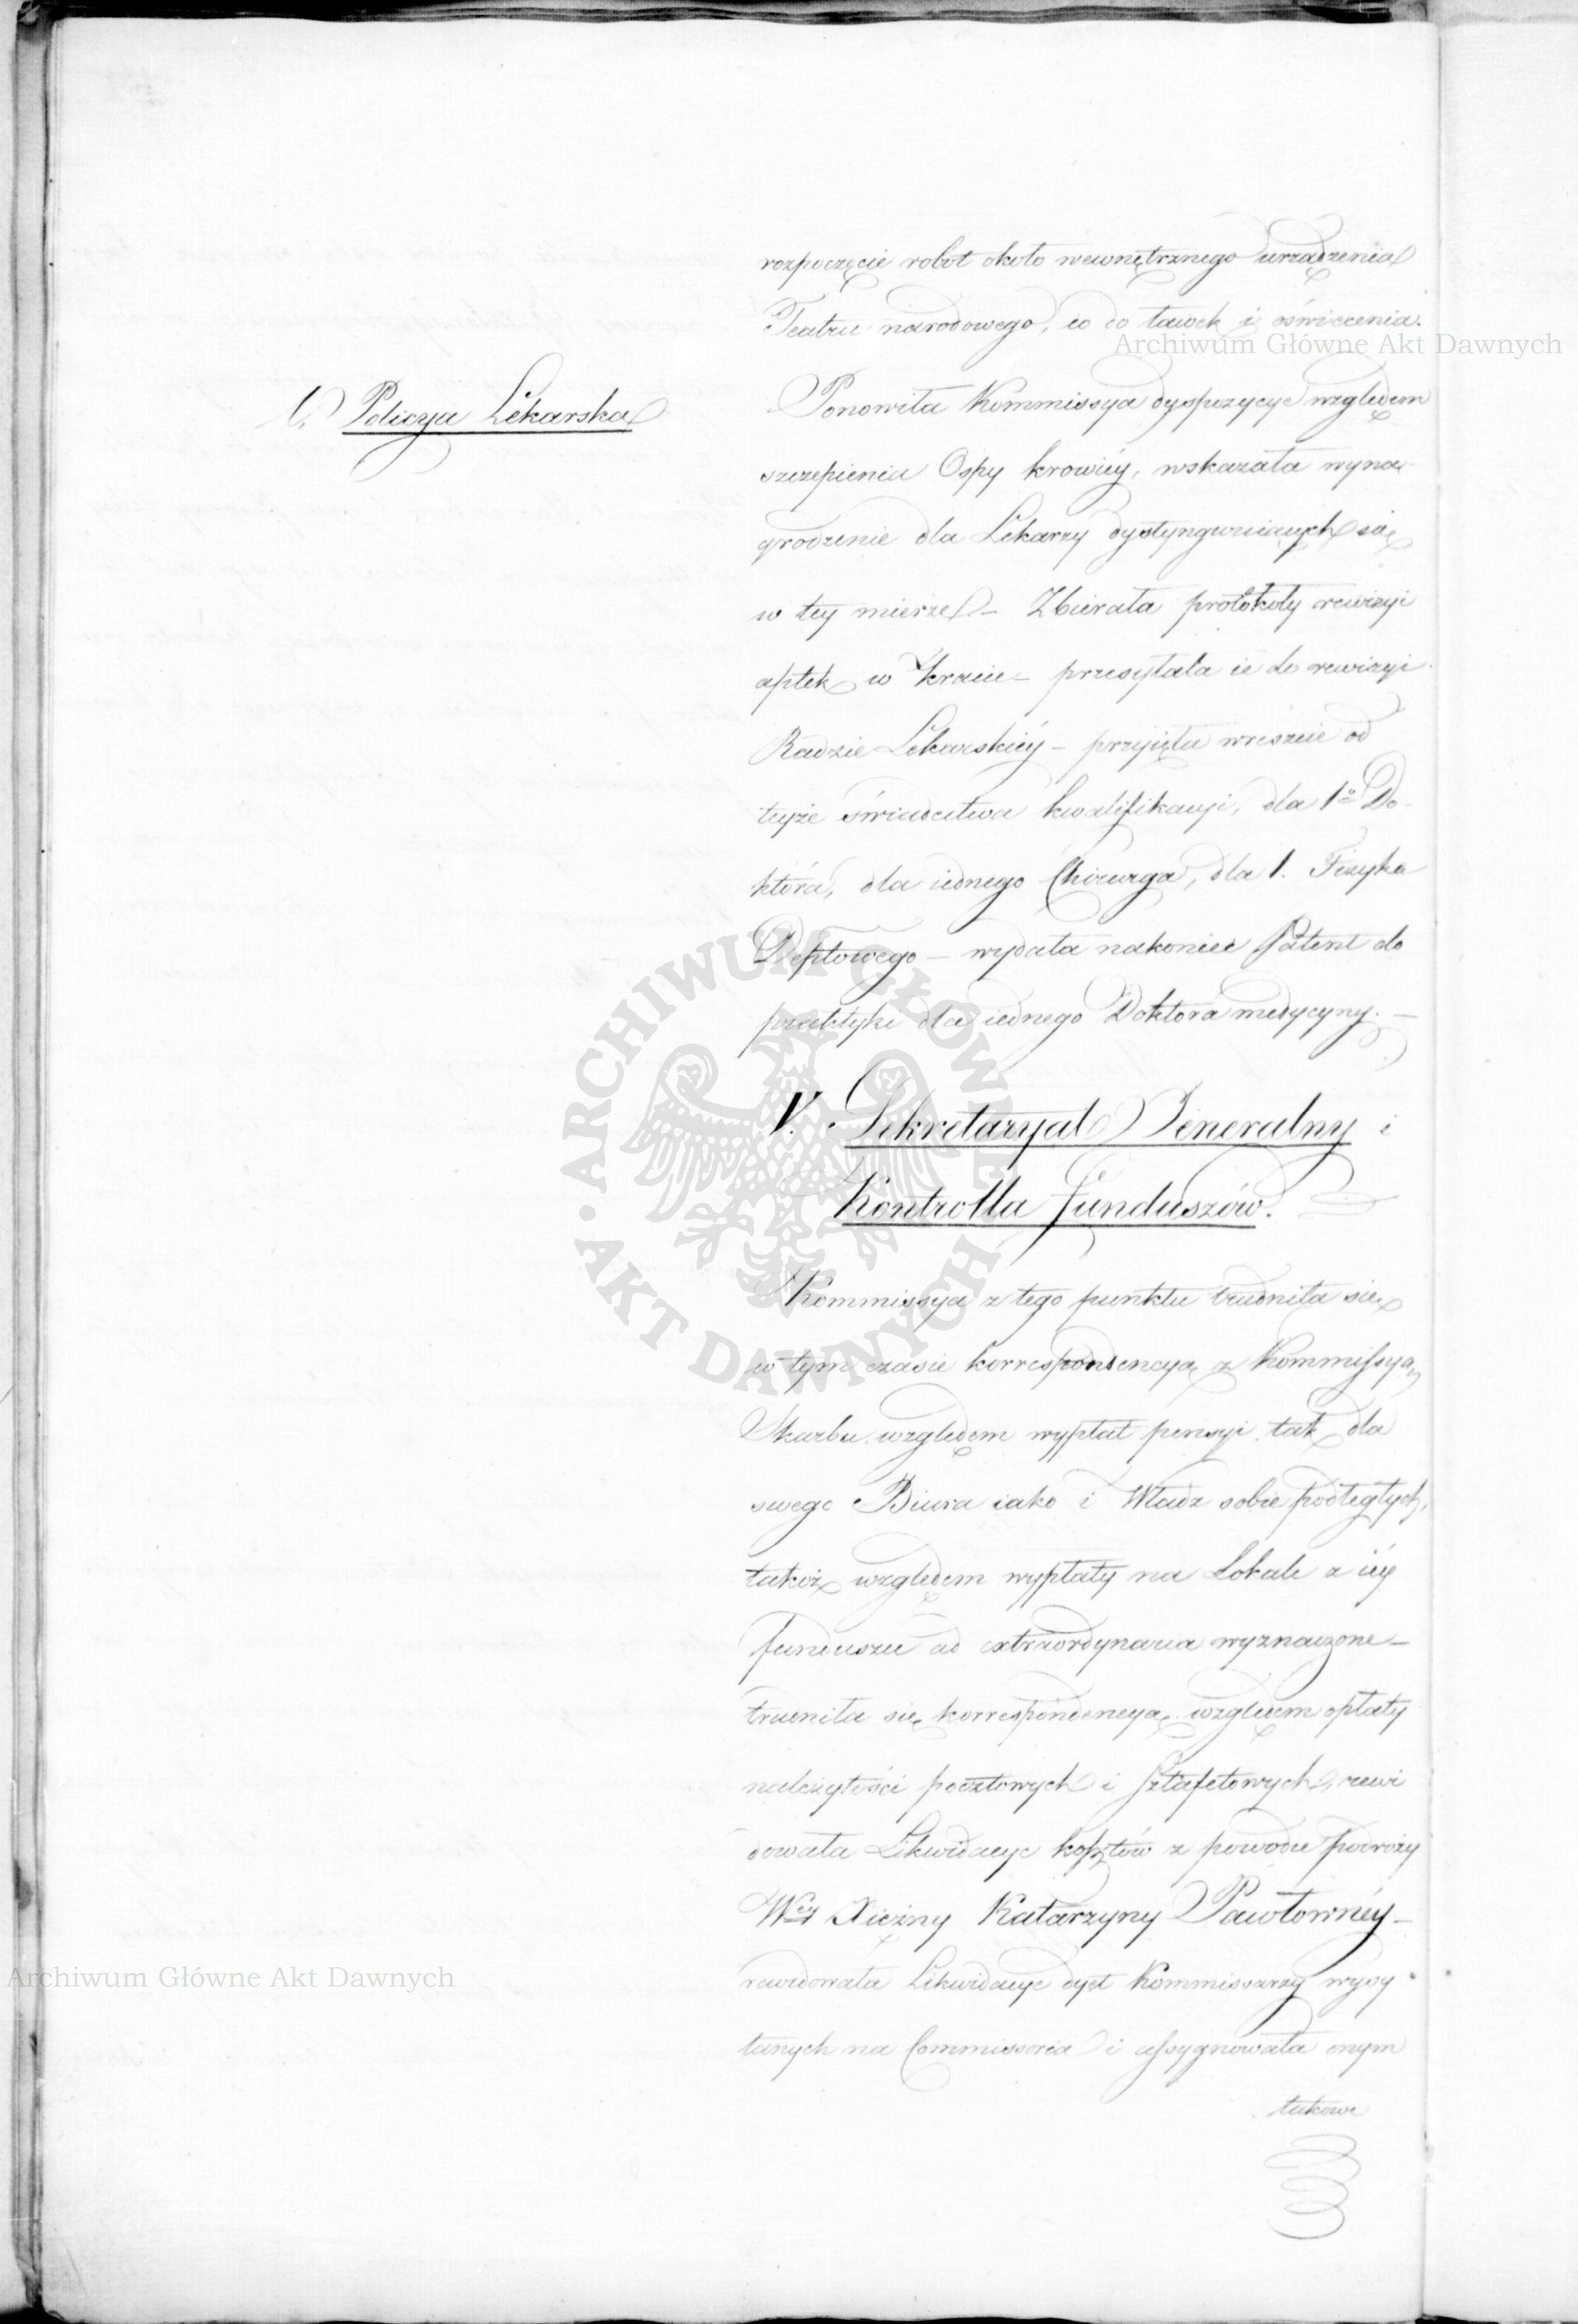 rozpoczęcie robot około wewnętrznego urządzenia
Teatru narodowego, co do ławek i oświecenia.
Archiwum Główne Akt Dawnych
Policya Lekarska
Ponowiła Kommissya dyspozycye względem
szczepienia Ospy krowiéy, wskazała wyna-
grodzenie dla Lekarzy dystyngwuiących się
w tey mierze – Zbierała protokoły rewizyi
aptek w Kraiu – przesyłała ie do rewizyi
Radzie Lekarskiéy – przyięła wreszcie od
teyże świadectwa kwalifikacyi, dla 1º Do-
ktora, dla iednego Chirurga, dla 1. Fizyka
Deptowego – wydała nakoniec Patent do
praktyki dla iednego Doktora medycyny. –
V. Sekretaryat Jeneralny i
Kontrolla funduszów.
ARCHIWUM GŁÓWNE • AKT DAWNYCH •
Kommissya z tego punktu trudniła się
w tym czasie korrespondencyą z Kommissyą
Skarbu względem wypłat pensyi tak dla
swego Biura iako i Władz sobie podległych,
takoż względem wypłaty na Lokale z iéy
funduszu ad extraordynaria wyznaczone –
trudniła się korrespondencyą względem opłaty
należytości pocztowych i sztafetowych, rewi
dowała Likwidacye kosztów z powodu podroży
Wéy Xiężny Katarzyny Pawłownéy –
rewidowała Likwidacye dyet Kommissarzy wysy
łanych na Commissoria i assygnowała onym
Archiwum Główne Akt Dawnych
takowe